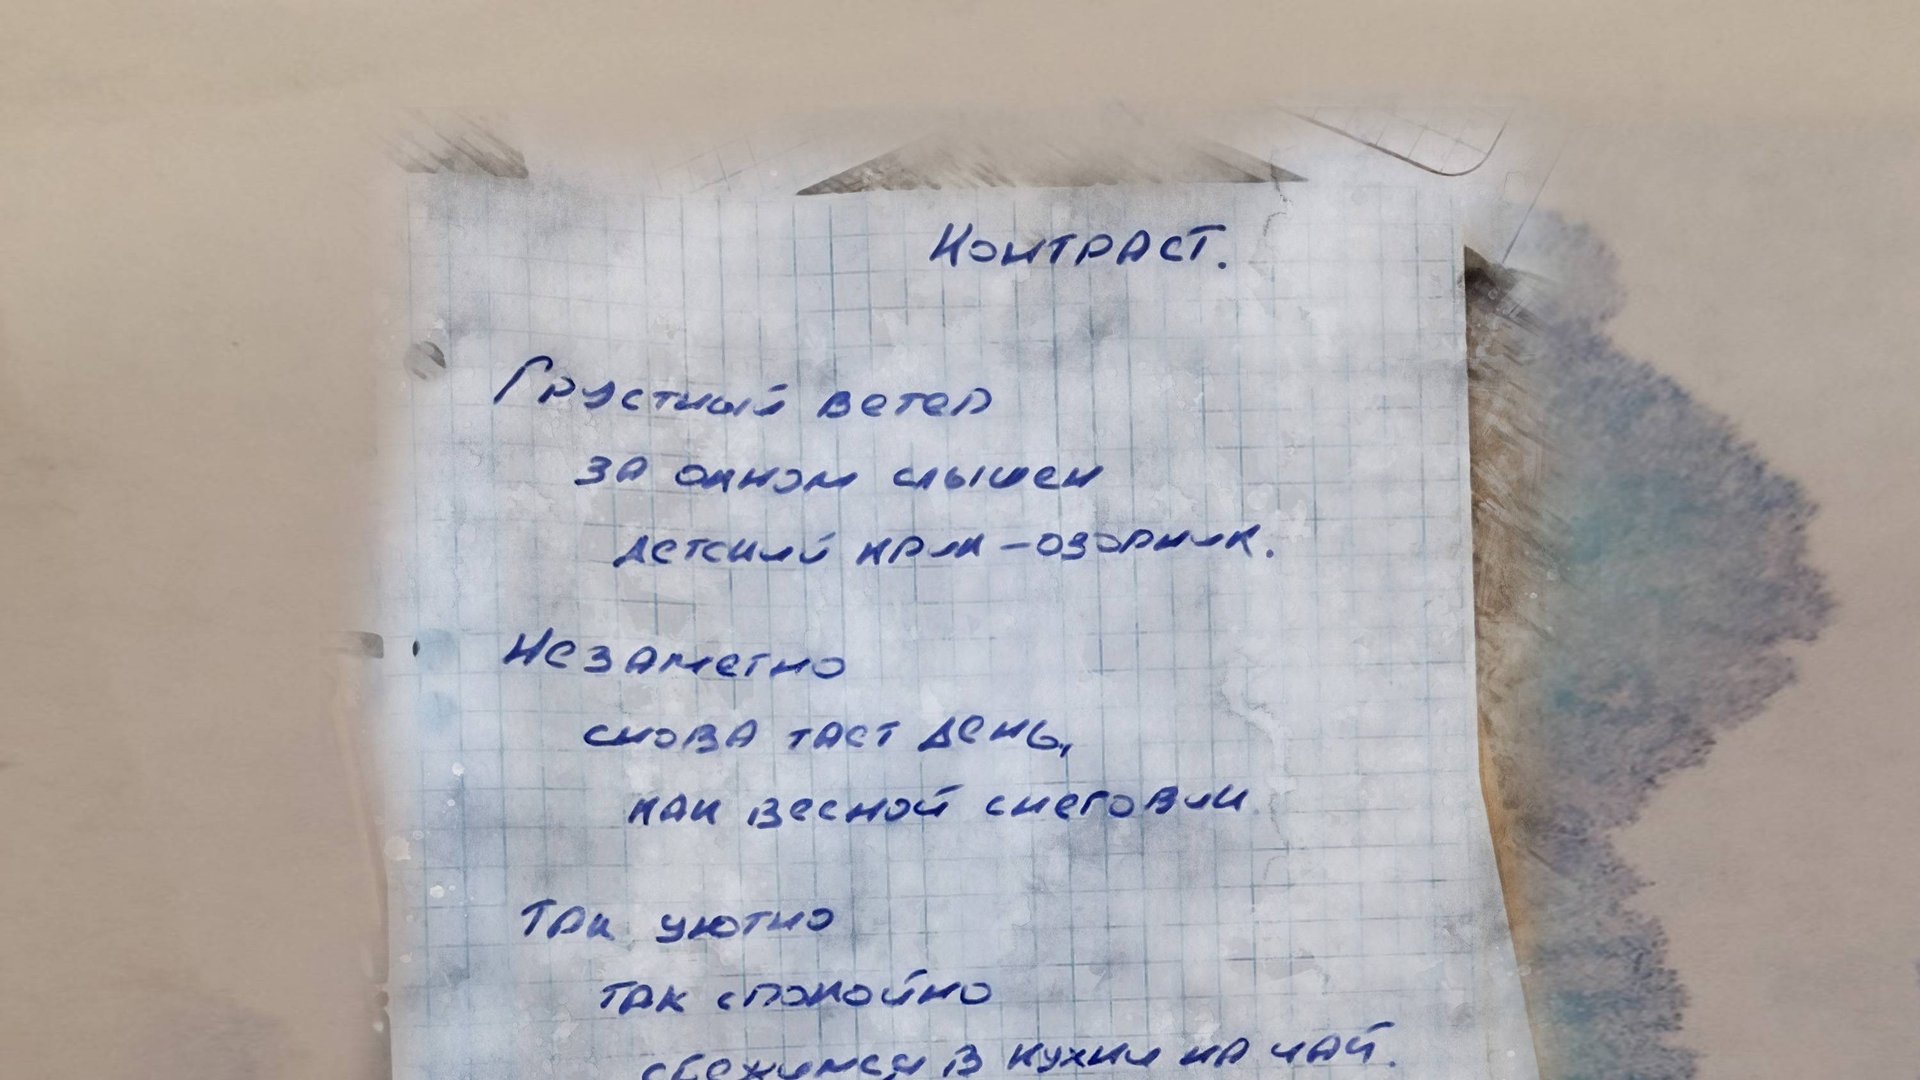 Контраст.
Грустный ветер
за окном слышен
детский крик-озорник.
Незаметно
снова тает день,
как весной снеговик
Так уютно
так спокойно
сбежимся в кухни на чай.